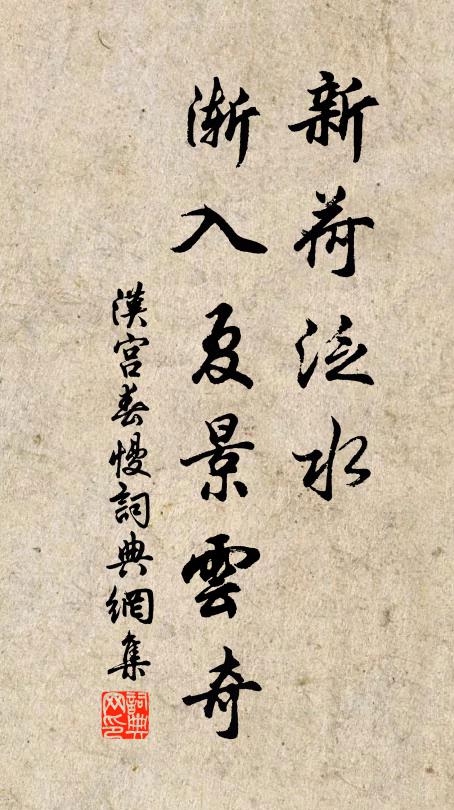 新荷泛水
漸入夏景雲奇
漢宮春慢詞典網集
詞典网印